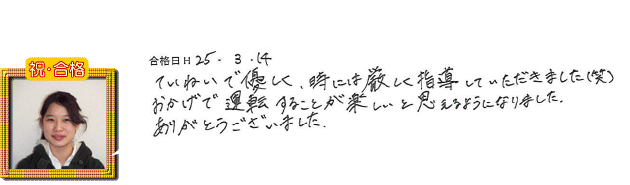 祝・合格
合格日H 25. 3. 14
ていねいで優しく、時には厳しく指導していただきました(笑)
おかげで運転することが楽しいと思えるようになりました。
ありがとうございました。